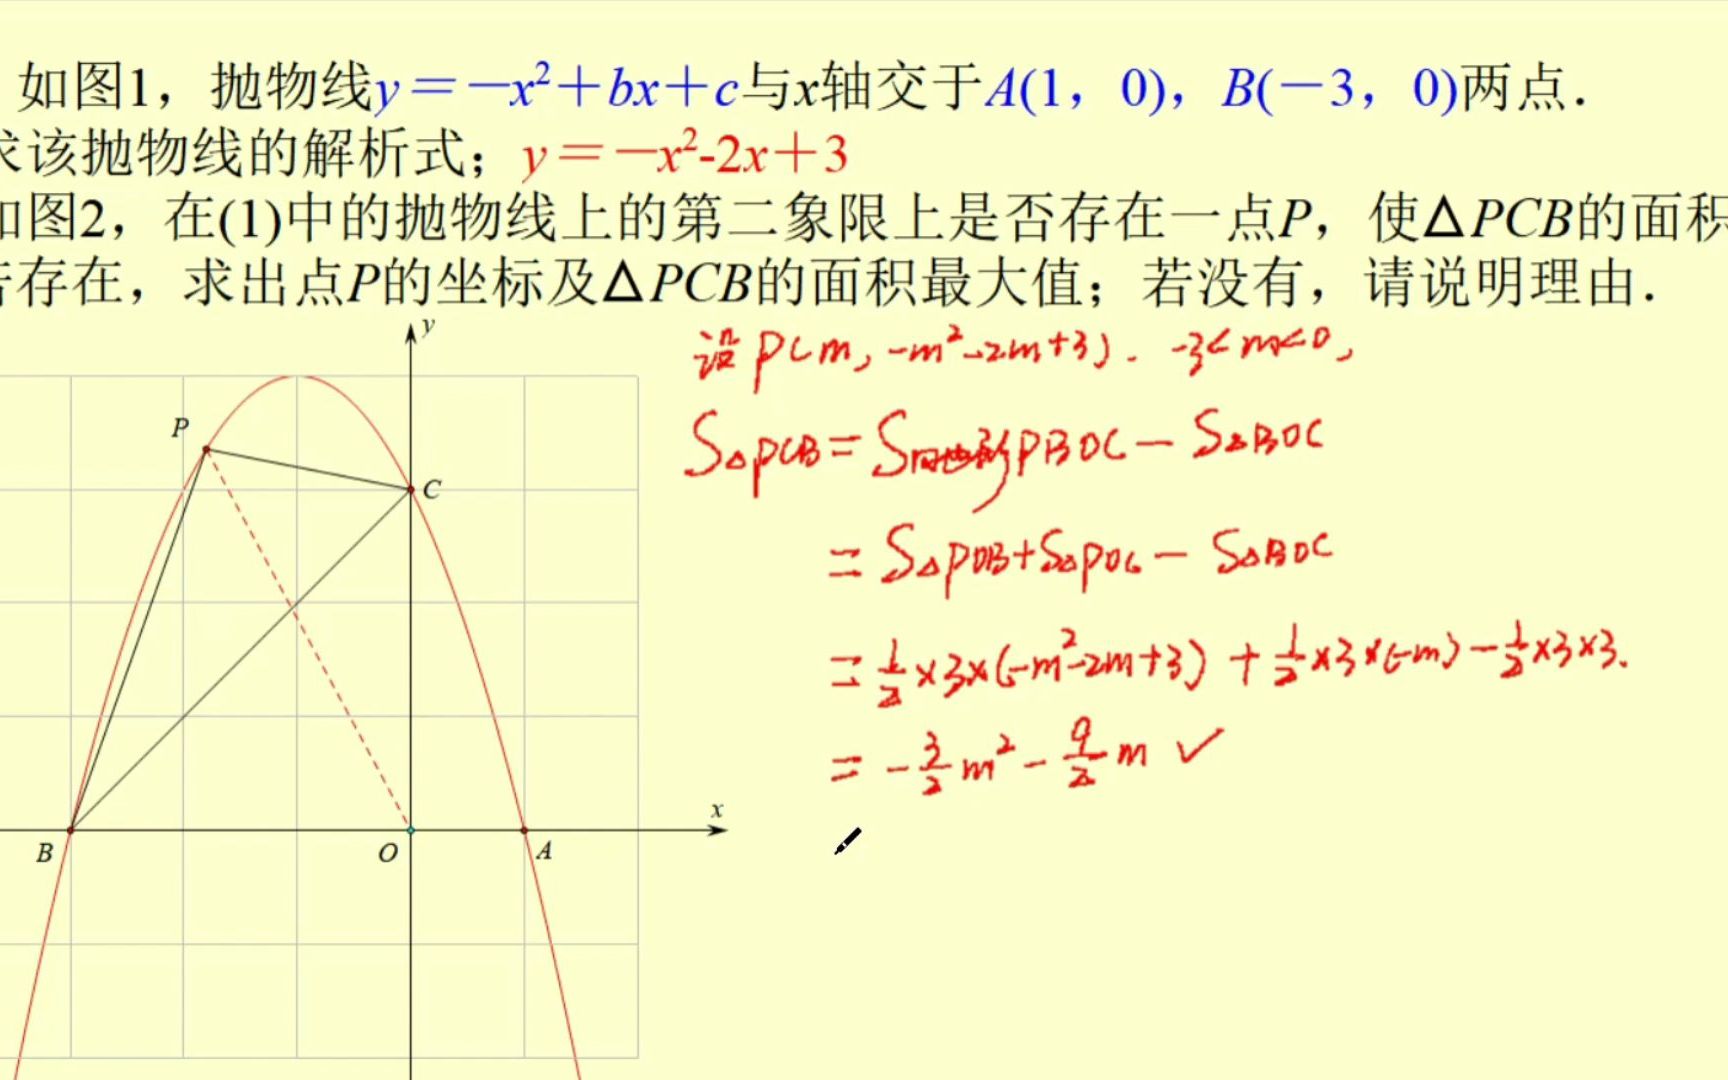 如图1，抛物线y＝－x²＋bx＋c与x轴交于A(1，0)，B(－3，0)两点．
求该抛物线的解析式；y＝－x²-2x＋3
如图2，在(1)中的抛物线上的第二象限上是否存在一点P，使△PCB的面积
若存在，求出点P的坐标及△PCB的面积最大值；若没有，请说明理由．
设P(m, -m²-2m+3). -3<m<0,
S△PCB=S四边形PBOC-S△BOC
=S△POB+S△POC-S△BOC
=½×3×(-m²-2m+3)+½×3×(-m)-½×3×3.
=-3/2m²-9/2m ✓
y
P
C
x
B
O
A